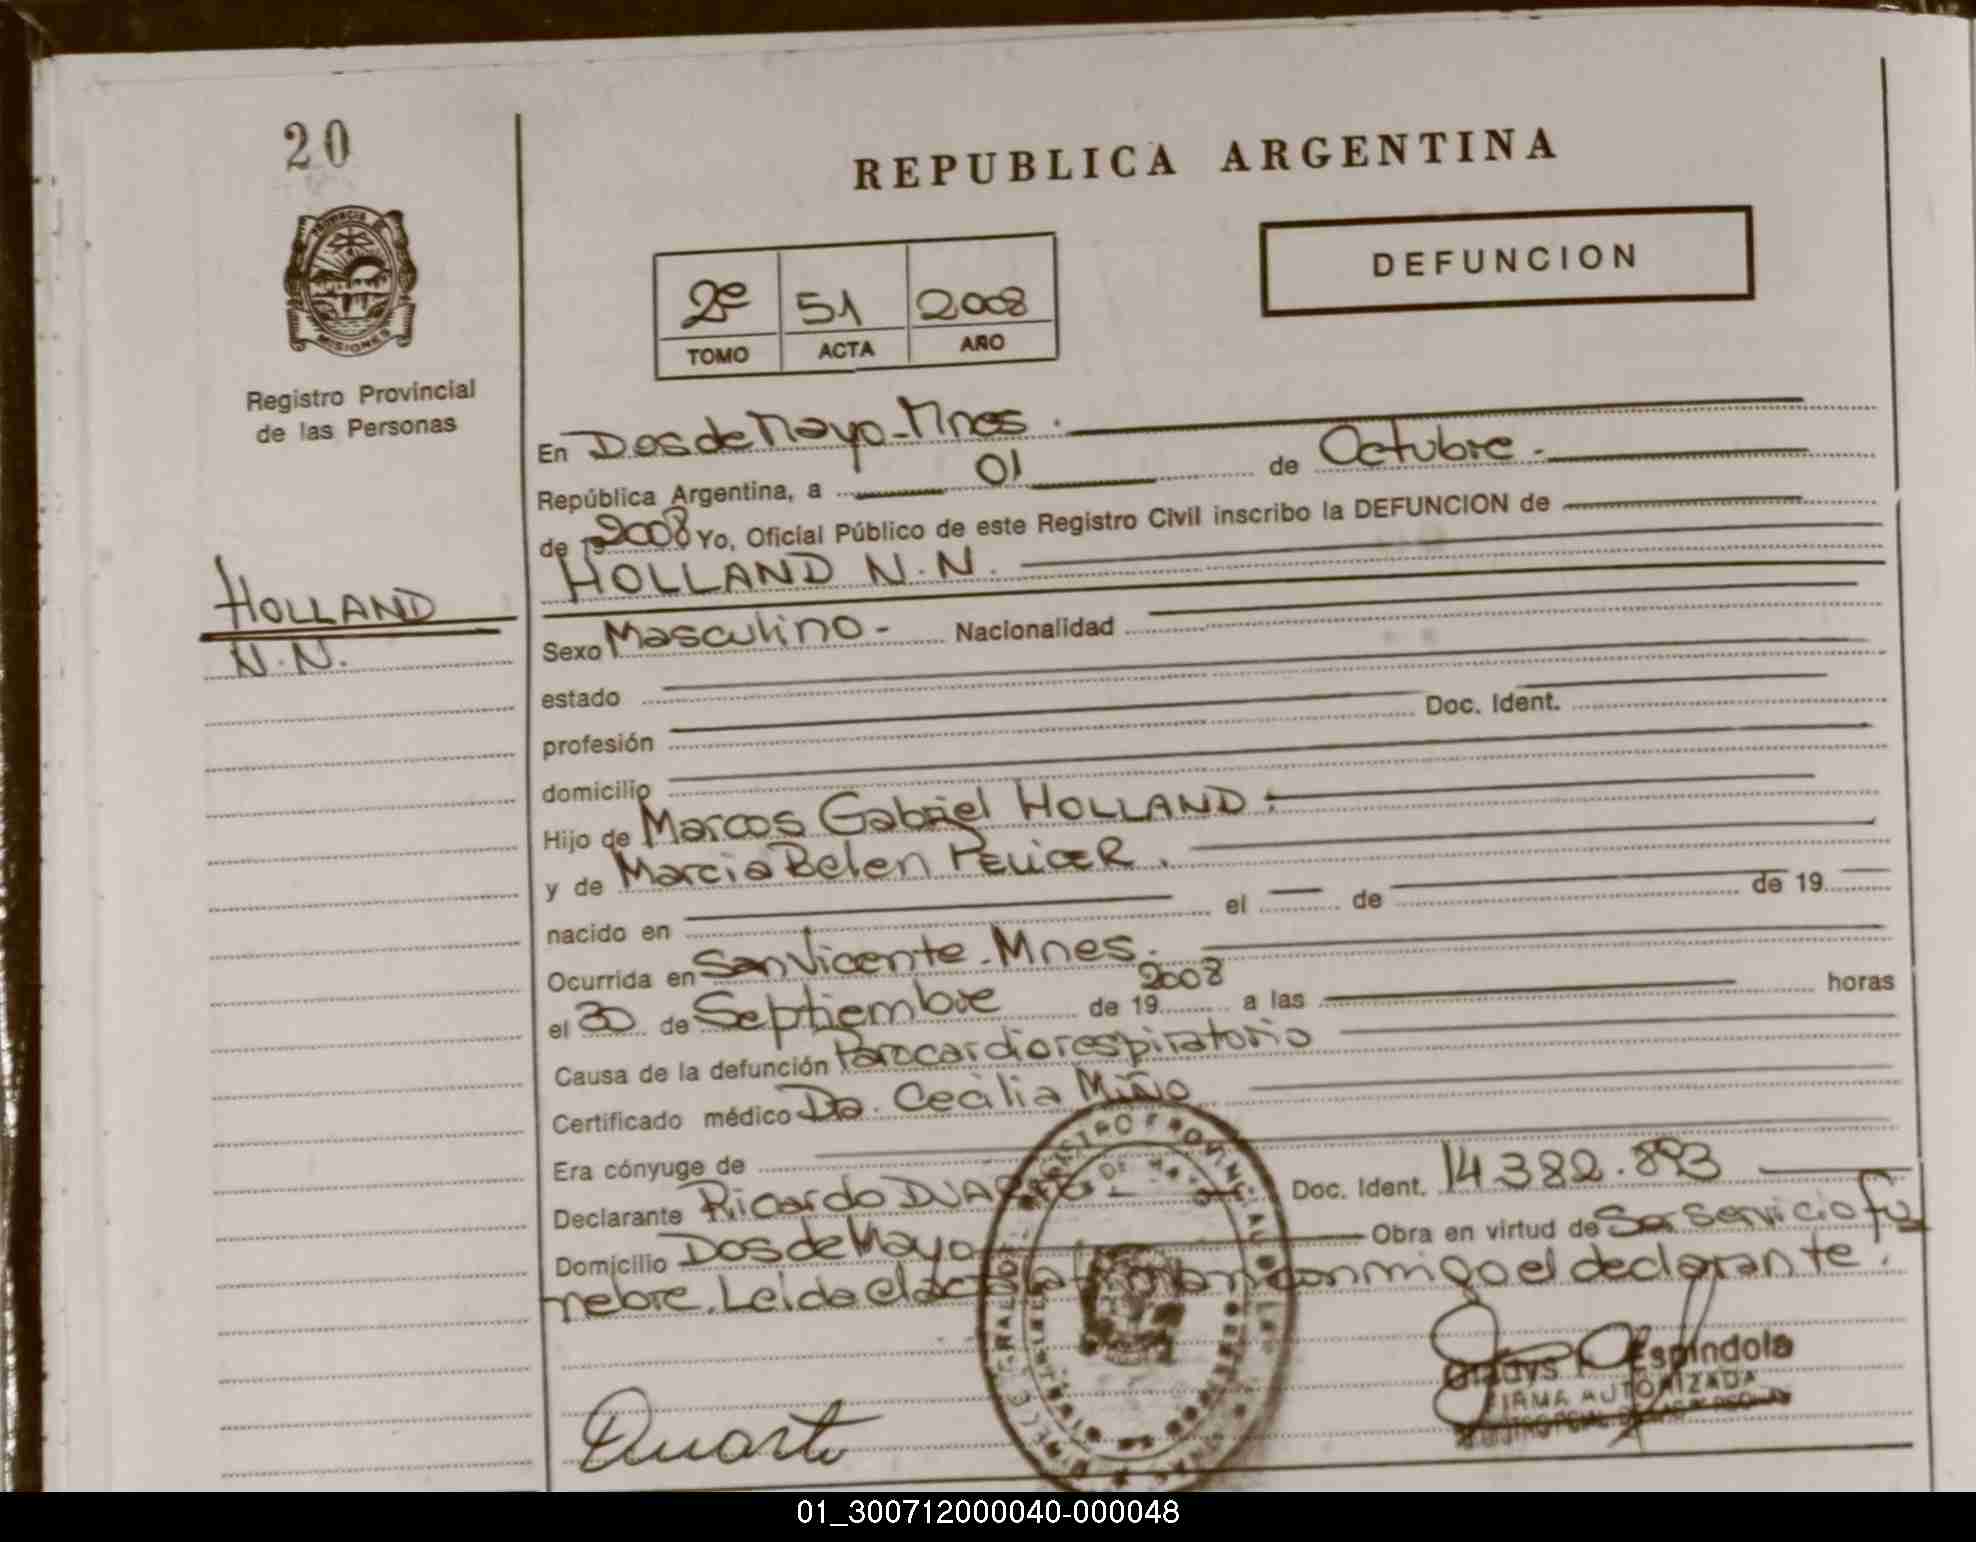 20
REPUBLICA ARGENTINA
PROVINCIA DE
MISIONES
DEFUNCION
2º 51 2008
TOMO ACTA AÑO
Registro Provincial
de las Personas
En Dos de Mayo - Mnes.
República Argentina, a 01 de Octubre.-
de 2008 Yo, Oficial Público de este Registro Civil inscribo la DEFUNCION de
HOLLAND N.N.
HOLLAND
N.N.
Sexo Masculino - Nacionalidad
estado
profesión Doc. Ident.
domicilio
Hijo de Marcos Gabriel HOLLAND.
y de Marcia Belen PELICER.
nacido en el de de 19
Ocurrida en San Vicente. Mnes.
el 30 de Septiembre de 19 2008 a las horas
Causa de la defunción Parocardiorespiratorio
Certificado médico Da. Cecilia Miño
Era cónyuge de
Declarante Ricardo DUAR Doc. Ident. 14382.893
Domicilio Dos de Mayo Obra en virtud de Ser servicio fú
nebre. Leida el acta la firman conmigo el declarante.
Duarte
Gladys Espindola
FIRMA AUTORIZADA
01_300712000040-000048